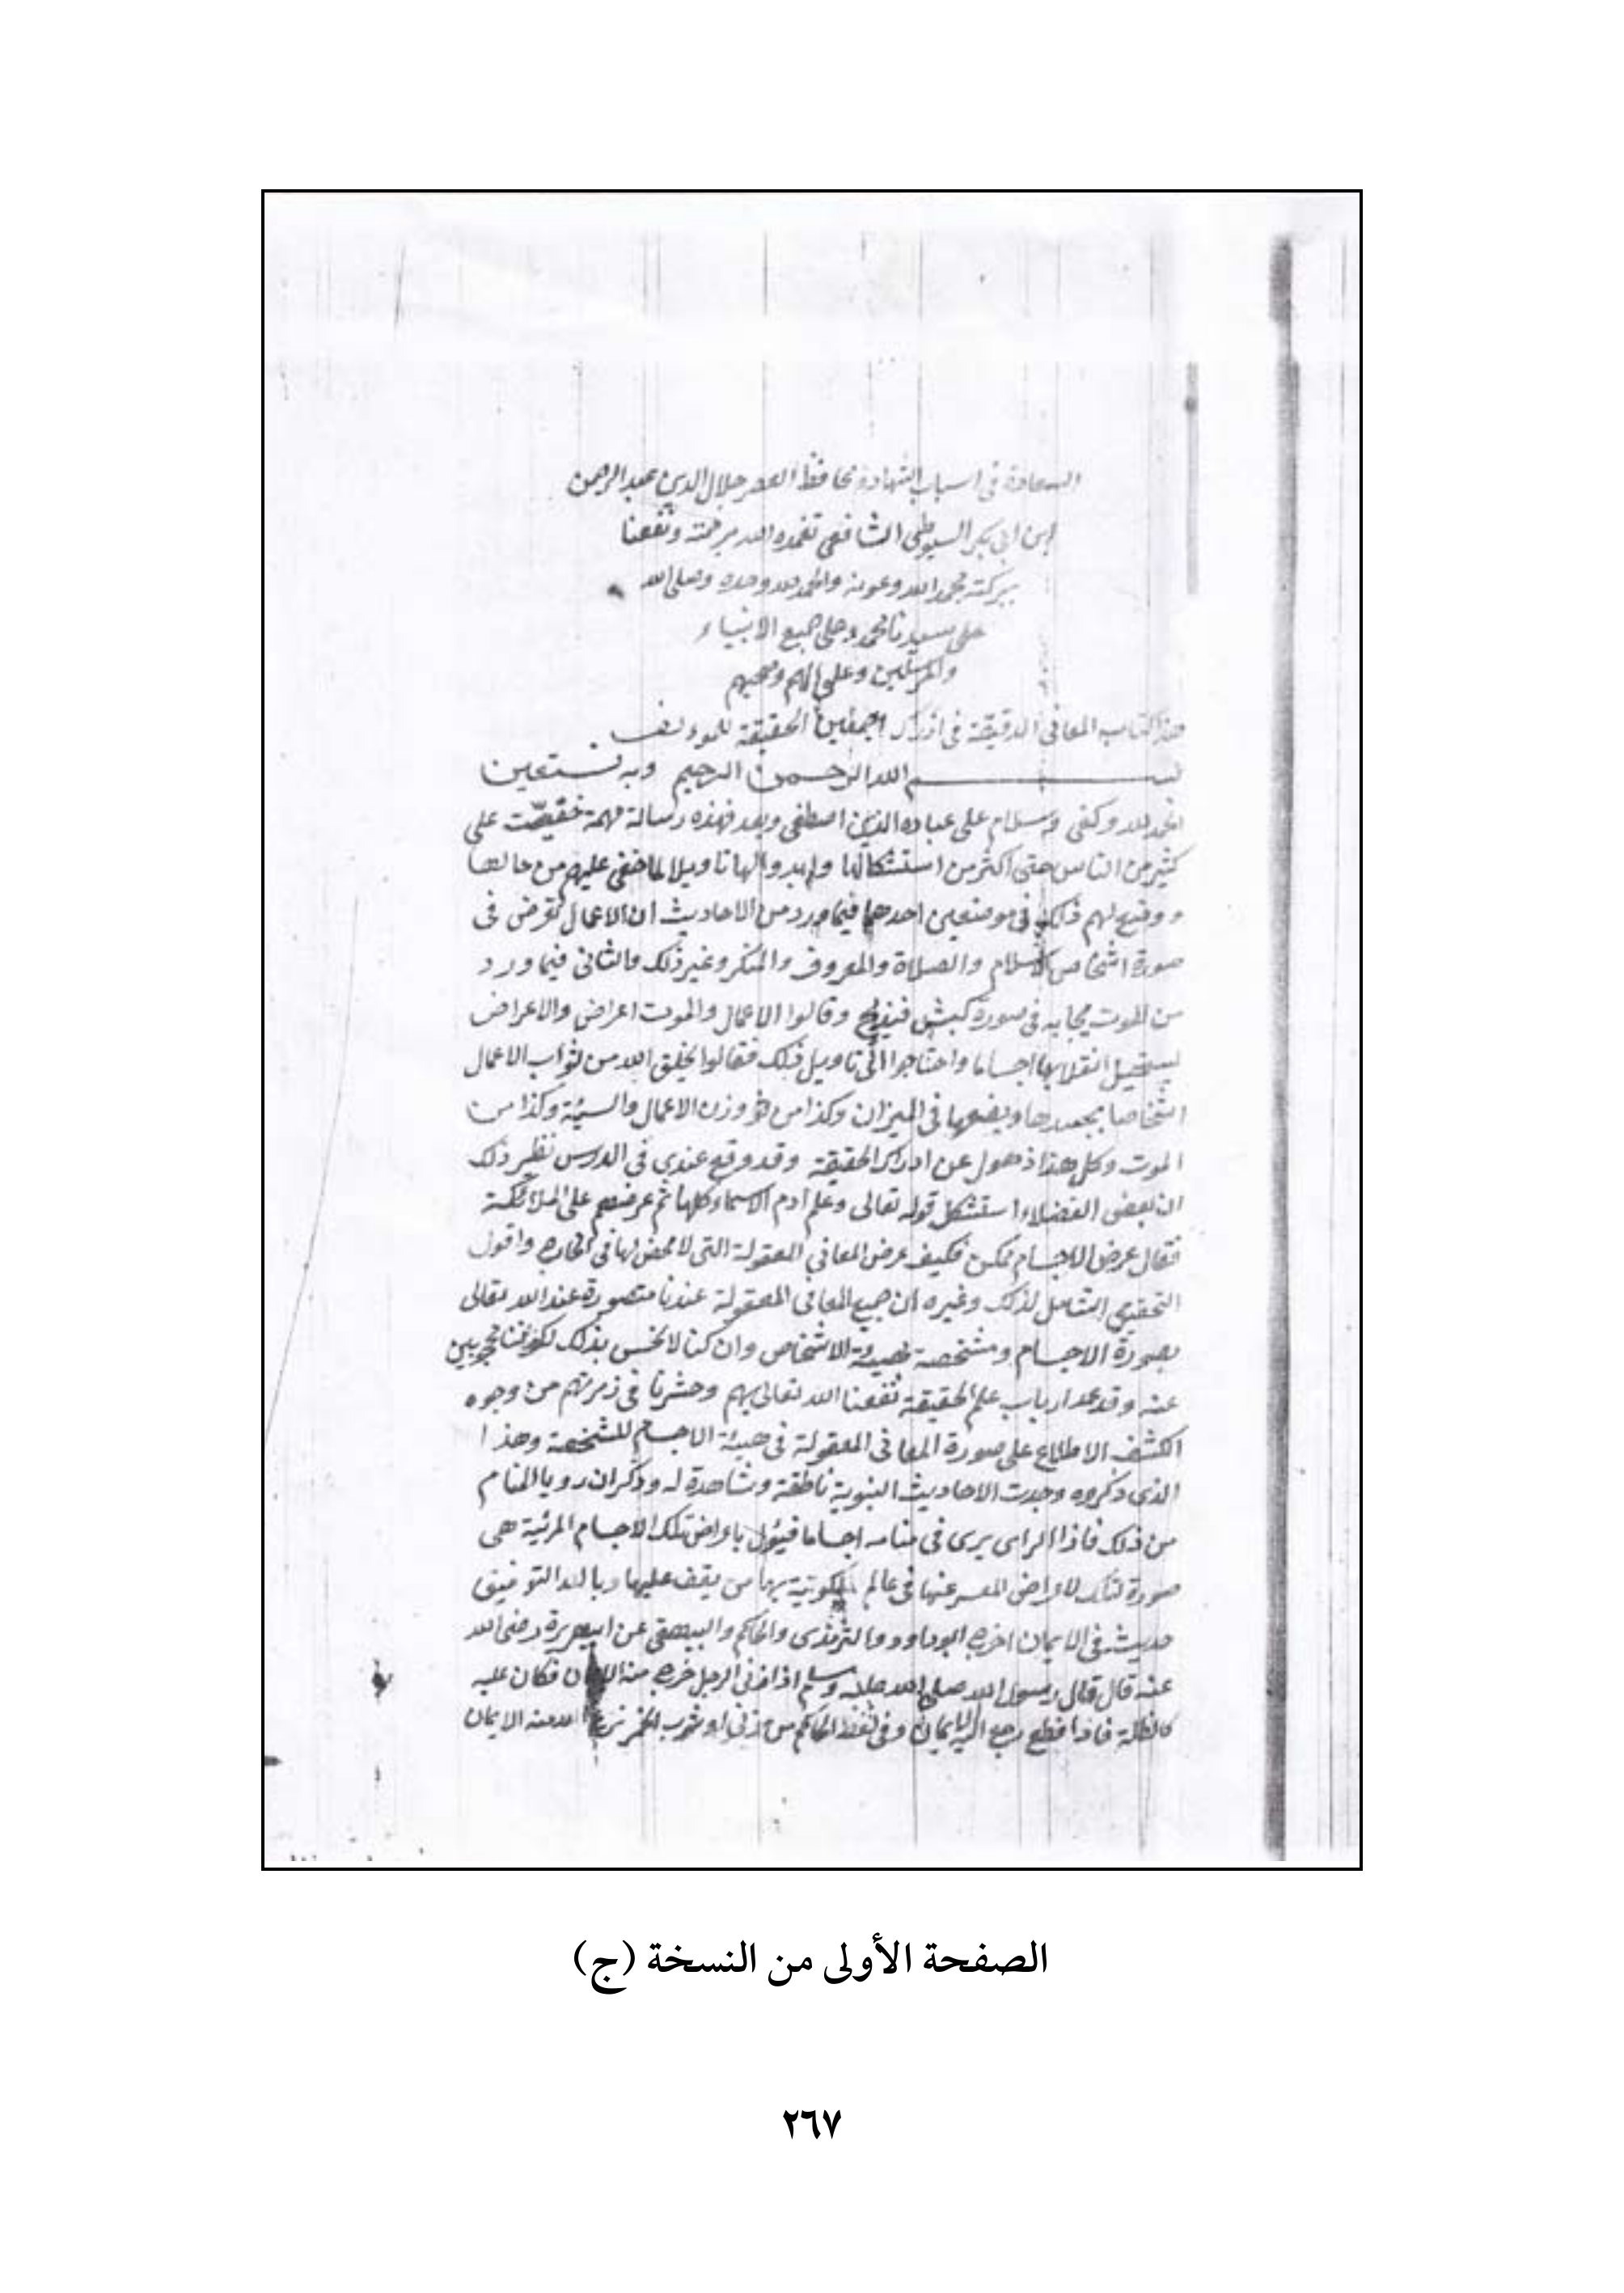 السعادة في اسباب الشهادة لحافظ العصر جلال الدين عبد الرحمن
ابن ابي بكر السيوطي الشافعي تغمده الله برحمته ونفعنا
ببركته بحمد الله وعونه والحمد لله وحده وصلى الله
على سيدنا محمد وعلى جميع الانبياء
والمرسلين وعلى الهم وصحبهم
هذا كتاب المعاني الدقيقة في ادراك اجمعين الحقيقة للمولف
بسم الله الرحمن الرحيم وبه نستعين
الحمد لله وكفى وسلام على عباده الذين اصطفى وبعد فهذه رسالة مهمة على
كثير من الناس حتى اكثر من استشكالها وابدوا لها تاويلا لما خفي عليهم من حالها
ووقع لهم ذلك في موضعين احدهما فيما ورد من الاحاديث ان الاعمال تعرض في
صورة اشخاص كالاسلام والصلاة والمعروف والمنكر وغير ذلك والثاني فيما ورد
من الموت يجابه في صورة كبش فيذبح وقالوا الاعمال والموت اعراض والاعراض
يستحيل انقلابها اجساما واحتاجوا الى تاويل ذلك فقالوا يخلق الله من ثواب الاعمال
اشخاصا ويضعها في الميزان وكذا من وزن الاعمال والسيئة وكذا من
الموت وكل هذا ذهول عن ادراك الحقيقة وقد وقع عندي في الدرس نظير ذلك
ان بعض الفضلاء استشكل قوله تعالى وعلم ادم الاسماء كلها ثم عرضهم على الملائكة
فقال عرض الاجسام ممكن فكيف عرض المعاني المعقولة التي لها في الخارج واقول
التحقيق الشامل لذلك وغيره ان جميع المعاني المعقولة عندنا متصورة عند الله تعالى
بصورة الاجسام ومشخصة الاشخاص وان كنا لا نحس بذلك لكوننا محجوبين
عنه وقد عد ارباب علم الحقيقة نفعنا الله تعالى بهم وحشرنا في زمرتهم من وجوه
الكشف الاطلاع على صورة المعاني المعقولة في هيئة الاجسام المشخصة وهذا
الذي ذكروه وجدت الاحاديث النبوية ناطقة وشاهدة له وذكر ان رويا المنام
من ذلك فاذا الراى يرى في منامه اجساما فيئول باعراض تلك الاجسام المرئية هي
صورة لتلك الاعراض المعبر عنها في عالم من يقف عليها وبالله التوفيق
حديث في الايمان اخرج ابوداود والترمذي والحاكم والبيهقي عن ابي هريرة رضي الله
عنه قال قال رسول الله صلى الله عليه وسلم اذا زنى الرجل خرج منه الايمان فكان عليه
كالظلة فاذا رجع اليه الايمان وفي لفظ الحاكم من زنى او شرب الخمر نزع الله منه الايمان
الصفحة الأولى من النسخة (ج)
٢٦٧